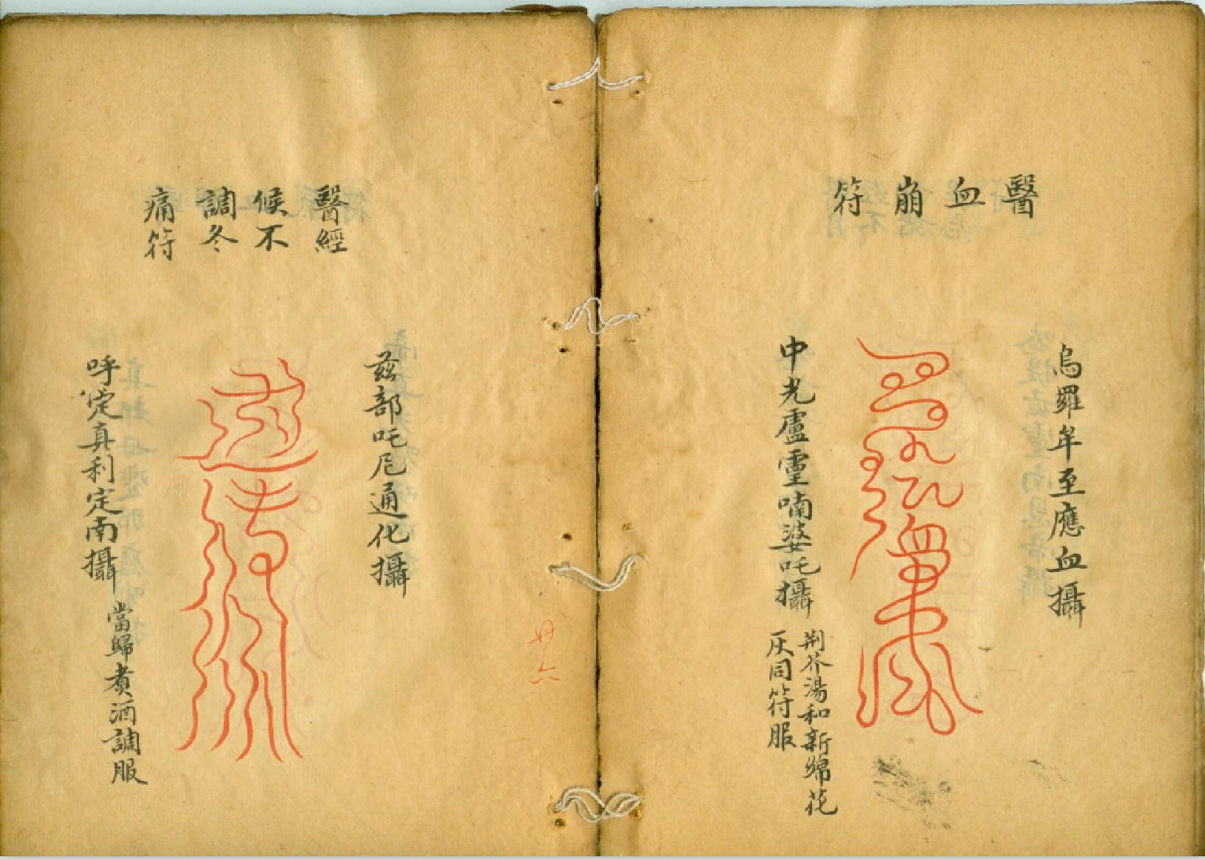 醫血崩符
烏羅牟至應血攝
中光盧霊喃婆吒攝
荆芥湯和新綿花
灰同符服
醫經
候不
調冬
痛符
茲部吒卮通化攝
呼定真利定南攝
當歸煮酒調服